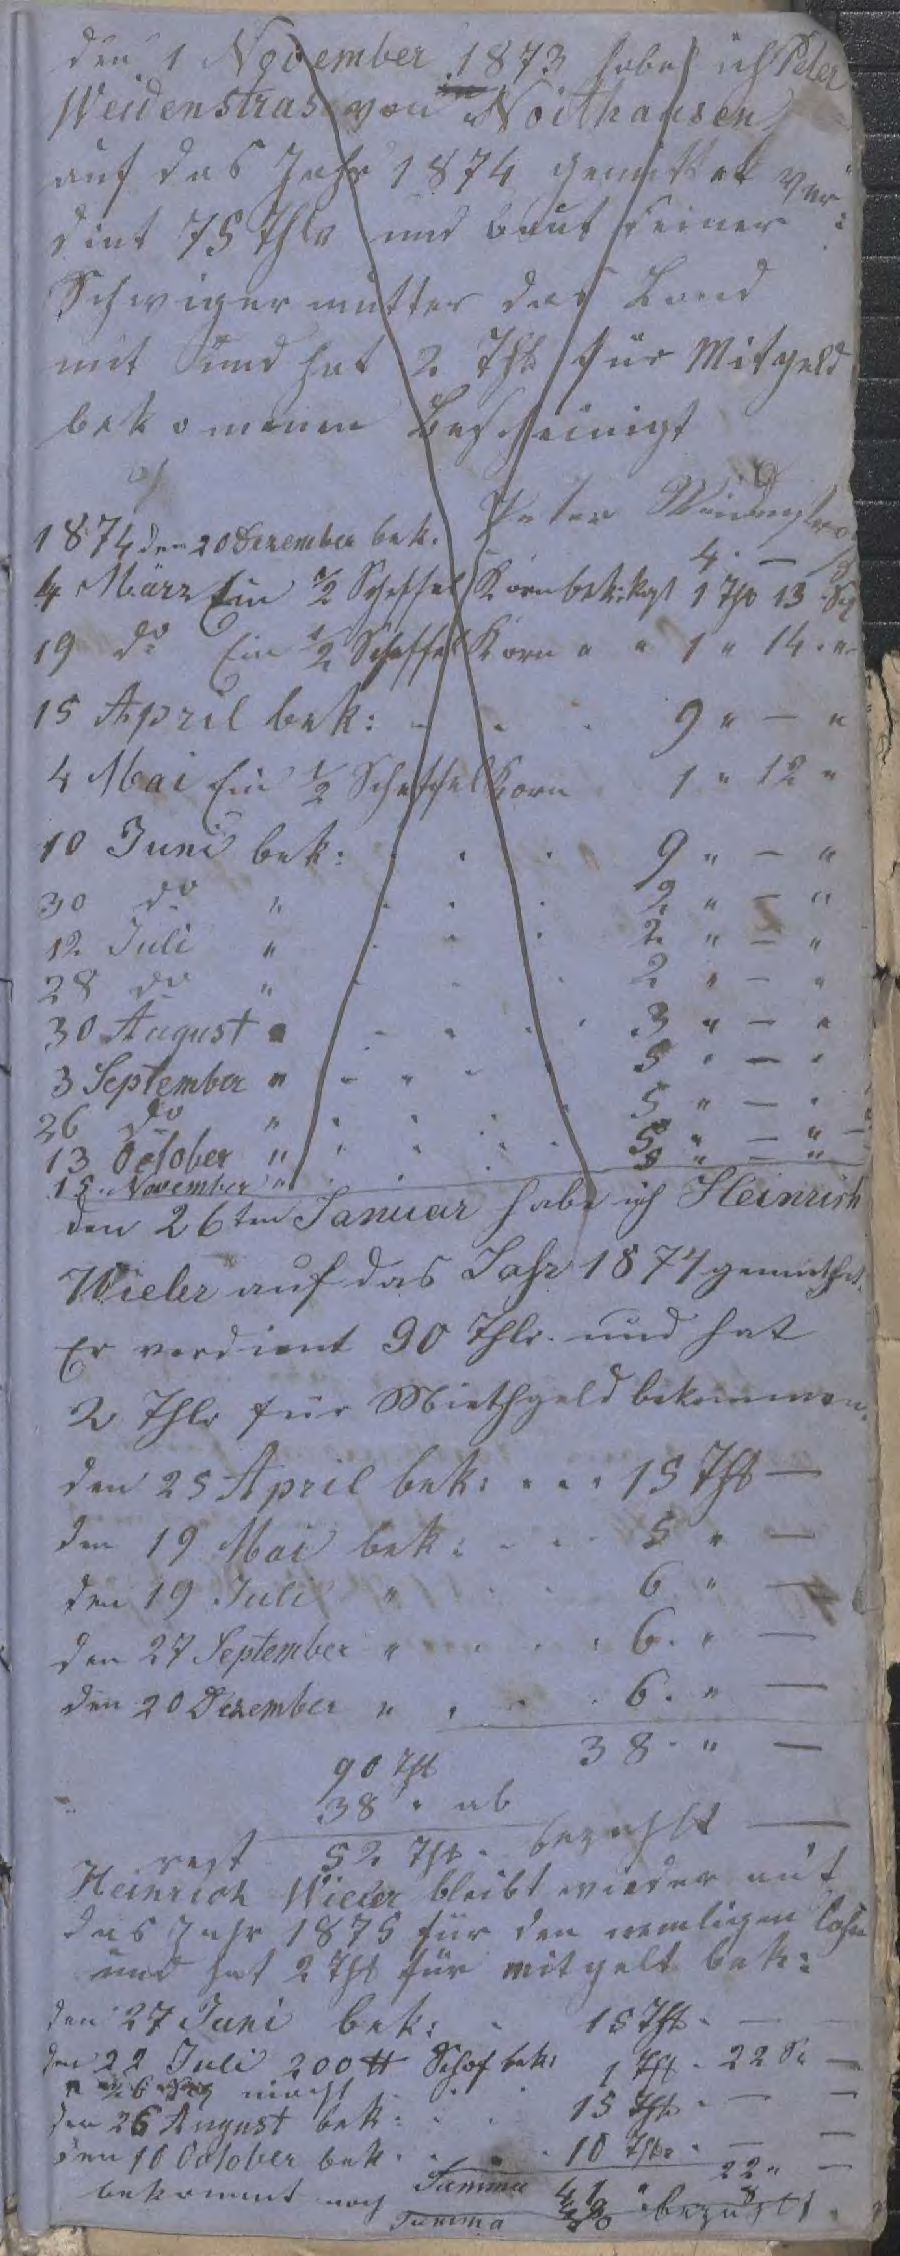 den 1 November 1873 habe ich Peter
Weidenstras von Noithausen
auf das Jahr 1874 gemithet ver:
dint 75 Thlr und baut seiner
Schwiger mutter das Land
mit und hat 2 Thlr für Mitgeld
bekomenen Bescheinigt
Peter Weidenstras
1874 den 20 Dezember bek. 4. —
4 März Ein 1/2 Scheffel Korn 1 Thr 13 Sg
19 do Ein 1/2 Scheffel Korn " " 1 " 14 "
15 April bek: 9 " — "
4 Mai Ein 1/2 Scheffel Korn 1 " 12 "
10 Juni bek: 9 " — "
30 do " 2 " — "
12 Juli " 2 " — "
28 do " 2 " — "
30 August " 3 " — "
3 September " 5 " — "
26 do " 5 " — "
13 October " 5 " — "
15 November "
den 26ten Januar habe ich Heinrich
Wieler auf das Jahr 1874 gemiethet.
Er verdient 90 Thlr. und hat
2 Thlr für Miethgeld bekommen.
den 25 April bek: . . . 15 Thlr —
den 19 Mai bek: . . . 5 " —
den 19 Juli " 6 " —
den 27 September " 6 . " —
den 20 Dezember " 6 . " —
38 . " —
90 Thlr
38 " ab
rest 52 Thlr . bezahlt —
Heinrich Wieler bleibt wieder auf
das Jahr 1875 für den nemligen Lohn
und hat 2 Thlr für mitgelt bek:
den 27 Juni bek: 15 Thlr . —
den 22 Juli 200 ℔ bek: 1 Thlr . 22 —
macht
den 26 August bek: 15 Thlr . —
den 10 October bek . 10 Thlr . —
Summa 41 " 22 " —
bekommt noch bezahlt
Summa